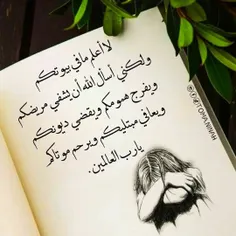 لا أعلم مافي بيوتكم
ولكني أسأل الله أن يشفي مريضكم
ويفرج همومكم ويقضي ديونكم
ويعافي مبتليكم ويرحم موتاكم
يارب العالمين.